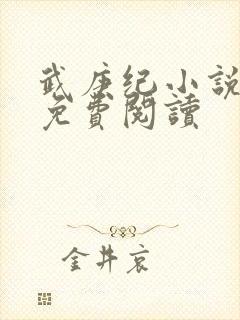 武庚纪小説
免費閱讀
金井哀